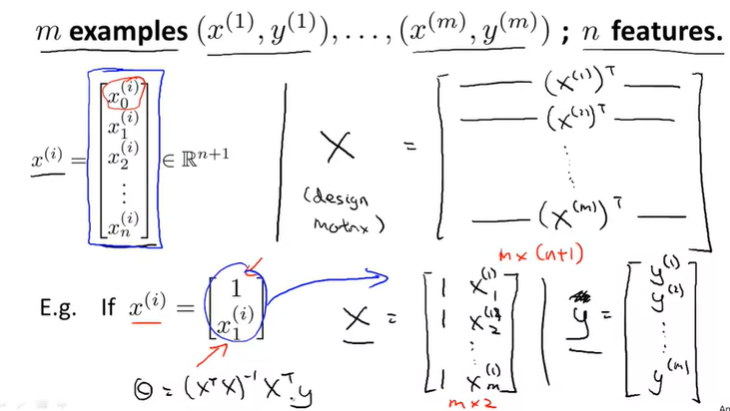 m examples (x^{(1)}, y^{(1)}), . . . , (x^{(m)}, y^{(m)}) ; n features.
x^{(i)} = [ x_0^{(i)} x_1^{(i)} x_2^{(i)} ⋮ x_n^{(i)} ] ∈ ℝ^{n+1}
X (design matrix) = [ — (x^{(1)})^T — — (x^{(2)})^T — ⋮ — (x^{(m)})^T — ]
m x (n+1)
E.g. If x^{(i)} = [ 1 x_1^{(i)} ]
X = [ 1 x_1^{(1)} 1 x_2^{(1)} ⋮ 1 x_m^{(1)} ]
m x 2
y = [ y^{(1)} y^{(2)} ⋮ y^{(m)} ]
Θ = (X^T X)^{-1} X^T y
An